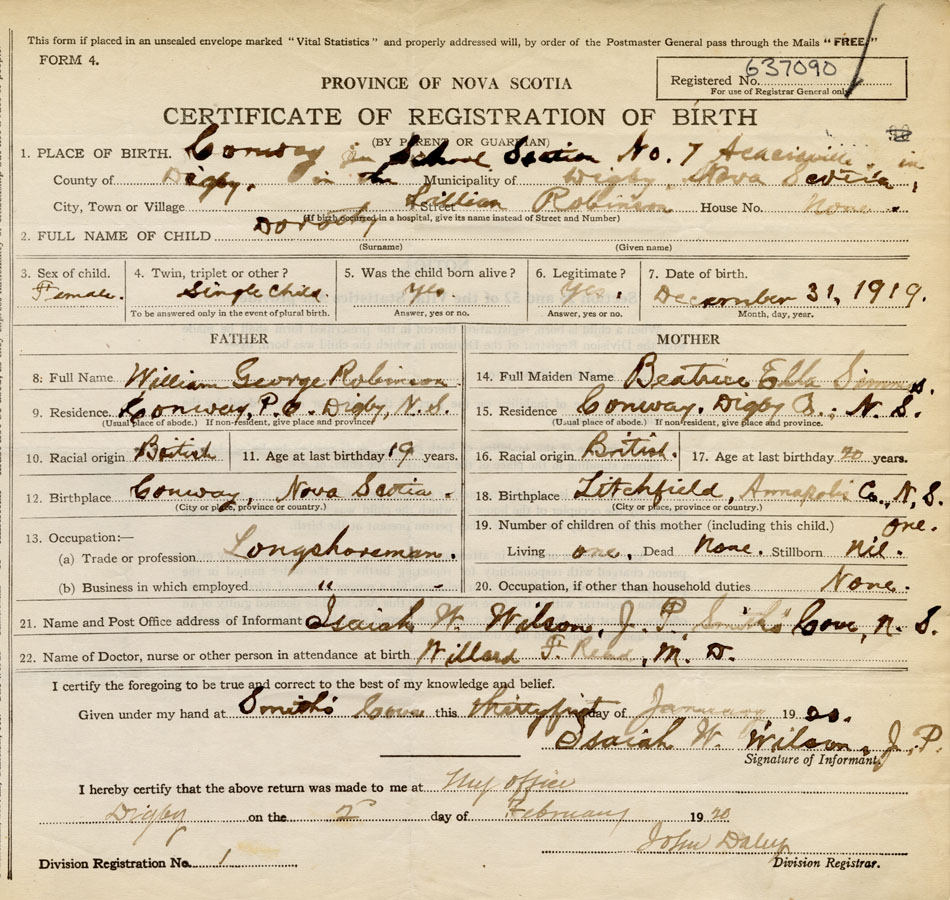 This form if placed in an unsealed envelope marked "Vital Statistics" and properly addressed will, by order of the Postmaster General pass through the Mails "FREE."
FORM 4.
637090
Registered No.
For use of Registrar General only
PROVINCE OF NOVA SCOTIA
CERTIFICATE OF REGISTRATION OF BIRTH
(BY PARENT OR GUARDIAN)
1. PLACE OF BIRTH. Conway in School Section No. 7 Acaciaville, in
County of Digby, in the Municipality of Digby, Nova Scotia,
City, Town or Village Street Lillian Robinson House No. None.
(If birth occurred in a hospital, give its name instead of Street and Number)
2. FULL NAME OF CHILD Dorothy
(Surname) (Given name)
3. Sex of child. 4. Twin, triplet or other? 5. Was the child born alive? 6. Legitimate? 7. Date of birth.
Female. Single Child Yes Yes. December 31, 1919.
To be answered only in the event of plural birth. Answer, yes or no. Answer, yes or no. Month, day, year.
FATHER MOTHER
8: Full Name William George Robinson. 14. Full Maiden Name Beatrice Ella Simms.
9. Residence Conway, P.O. Digby, N.S. 15. Residence Conway. Digby Co. N.S.
(Usual place of abode.) If non-resident, give place and province (Usual place of abode.) If non-resident, give place and province.
10. Racial origin British 11. Age at last birthday 19 years. 16. Racial origin British. 17. Age at last birthday 20 years.
12. Birthplace Conway, Nova Scotia. 18. Birthplace Litchfield, Annapolis Co., N.S.
(City or place, province or country.) (City or place, province or country.)
13. Occupation:— 19. Number of children of this mother (including this child.) one.
(a) Trade or profession Longshoreman. Living one. Dead None. Stillborn nil.
(b) Business in which employed " - 20. Occupation, if other than household duties None.
21. Name and Post Office address of Informant Isaiah W. Wilson, J. P. Smith's Cove, N. S.
22. Name of Doctor, nurse or other person in attendance at birth Willard F. Read, M. D.
I certify the foregoing to be true and correct to the best of my knowledge and belief.
Given under my hand at Smith's Cove this thirtyfirst day of January 1920.
Isaiah W. Wilson, J. P.
Signature of Informant.
I hereby certify that the above return was made to me at My office
Digby on the 2 day of February 1920
John Daley
Division Registration No. 1 Division Registrar.